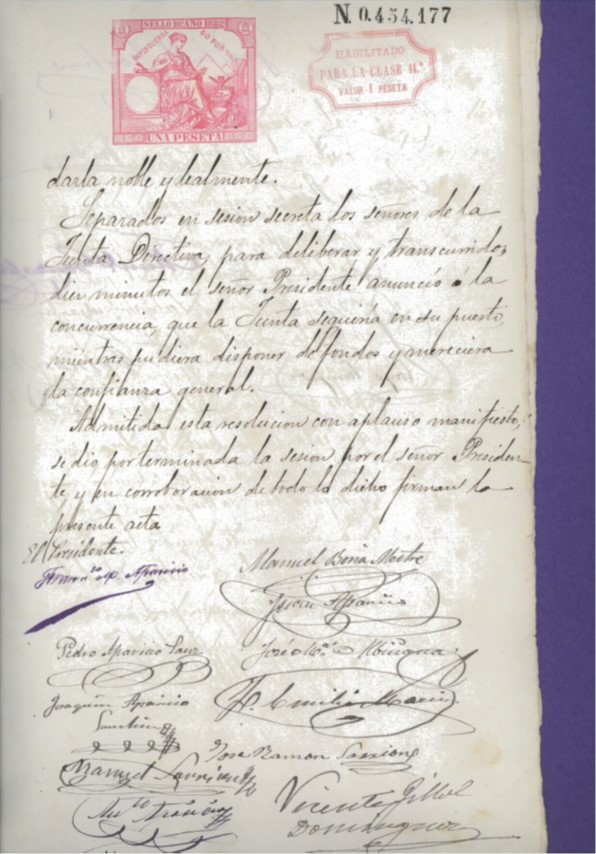 N. 0.454.177
SELLO 11º AÑO 1882
UNA PESETA
HABILITADO
PARA LA CLASE 11.ª
VALOR 1 PESETA
darla noble y lealmente.
Separados en sesion secreta los señores de la
Junta Directiva, para deliberar y transcurridos
diez minutos el señor Presidente anunció á la
concurrencia, que la Junta seguiría en su puesto,
mientras pudiera disponer de fondos y mereciera
la confianza general.
Admitida esta resolucion con aplauso manifiesto,
se dió por terminada la sesion por el señor Presiden-
te y en corroboracion de todo lo dicho firman la
presente acta
El Presidente.
Aparicio
Manuel Mestre
Aparicio
Pedro Aparicio Sanz
José Mª
Joaquin Aparicio
Sanchiz
P. Emilio Marin
Jose Ramon
Manuel
Vicente
Dominguez